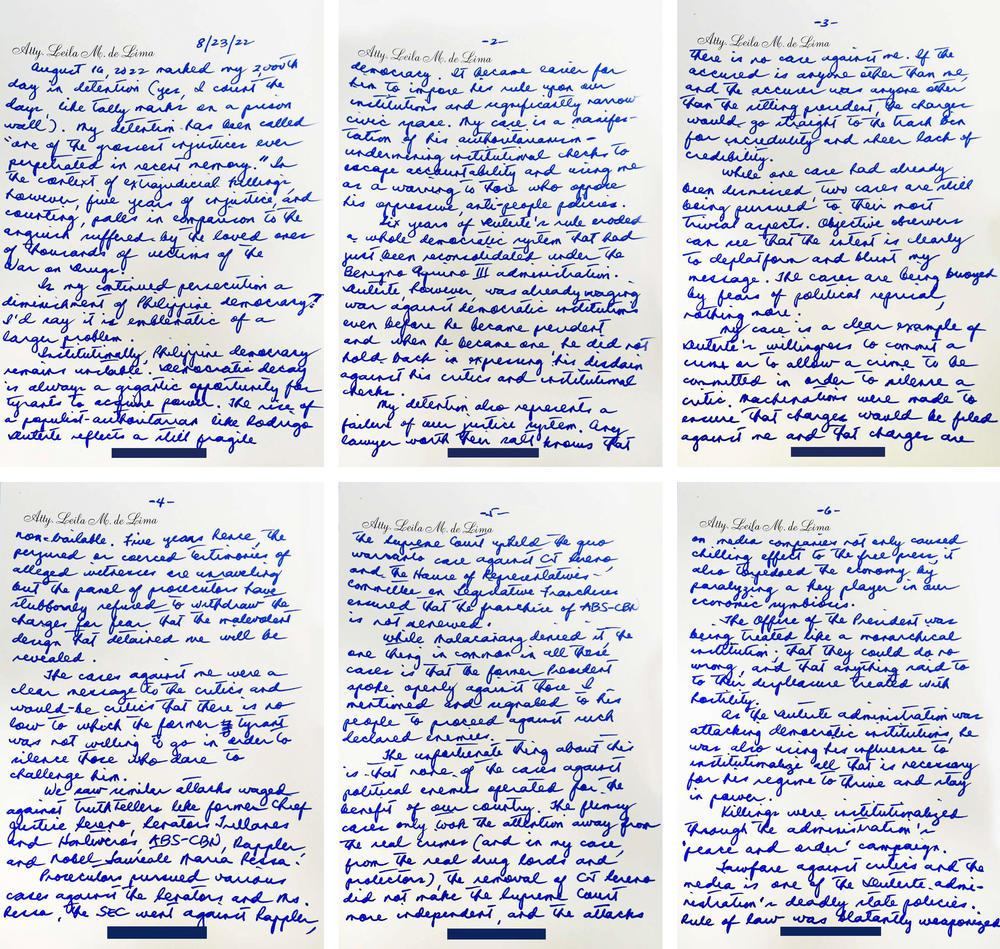 8/23/22
Atty. Leila M. de Lima
August 16, 2022 marked my 2000th
day in detention (yes, I count the
days, like tally marks on a prison
wall). My detention has been called
"one of the grossest injustices ever
perpetrated in recent memory." In
the context of extrajudicial killings,
however, five years of injustice, and
counting, pales in comparison to the
anguish suffered by the loved ones
of thousands of victims of the
War on Drugs.
Is my continued persecution a
diminishment of Philippine democracy?
I'd say it is emblematic of a
larger problem.
Institutionally, Philippine democracy
remains unstable. Democratic decay
is always a gigantic opportunity for
tyrants to acquire power. The rise of
a populist-authoritarian like Rodrigo
Duterte reflects a still fragile
-2-
Atty. Leila M. de Lima
democracy. It became easier for
him to impose his rule upon our
institutions and significantly narrow
civic space. My case is a manifes-
tation of his authoritarianism-
undermining institutional checks to
escape accountability and using me
as a warning to those who oppose
his oppressive, anti-people policies.
Six years of Duterte's rule eroded
a whole democratic system that had
just been reconsolidated under the
Benigno Aquino III administration.
Duterte however was already waging
war against democratic institutions
even before he became president
and when he became one he did not
hold back in expressing his disdain
against his critics and institutional
checks.
My detention also represents a
failure of our justice system. Any
lawyer worth their salt knows that
-3-
Atty. Leila M. de Lima
there is no case against me. If the
accused is anyone other than me,
and the accuser was anyone other
than the sitting president, the charges
would go straight to the trash bin
for incredulity and sheer lack of
credibility.
While one case had already
been dismissed, two cases are still
being pursued to their most
trivial aspects. Objective observers
can see that the intent is clearly
to deplatform and blunt my
message. The cases are being buoyed
by fears of political reprisal,
nothing more.
My case is a clear example of
Duterte's willingness to commit a
crime or to allow a crime to be
committed in order to silence a
critic. Machinations were made to
ensure that charges would be filed
against me and that charges are
-4-
Atty. Leila M. de Lima
non-bailable. Five years hence, the
perjured or coerced testimonies of
alleged witnesses are unraveling
but the panel of prosecutors have
stubbornly refused to withdraw the
charges for fear that the malevolent
design that detained me will be
revealed.
The cases against me were a
clear message to the critics and
would-be critics that there is no
low to which the former tyrant
was not willing to go in order to
silence those who dare to
challenge him.
We saw similar attacks waged
against truthtellers like former Chief
Justice Sereno, Senators Trillanes
and Hontiveros, ABS-CBN, Rappler
and Nobel Laureate Maria Ressa.
Prosecutors pursued various
cases against the Senators and Ms.
Ressa, the SEC went against Rappler,
-5-
Atty. Leila M. de Lima
the Supreme Court upheld the quo
warranto case against CJ Sereno
and the House of Representatives'
Committee on Legislative Franchises
ensured that the franchise of ABS-CBN
is not renewed.
While Malacañang denied it, the
one thing in common in all these
cases is that the former President
spoke openly against those I
mentioned and signaled to his
people to proceed against such
declared enemies.
The unfortunate thing about this
is that none of the cases against
political enemies operated for the
benefit of our country. The flimsy
cases only took the attention away from
the real crimes (and in my case,
from the real drug lords and
protectors), the removal of CJ Sereno
did not make the Supreme Court
more independent, and the attacks
-6-
Atty. Leila M. de Lima
on media companies not only caused
chilling effect to the free press, it
also torpedoed the economy by
paralyzing a key player in our
economic symbiosis.
The Office of the President was
being treated like a monarchical
institution: that they could do no
wrong, and that anything said to
to their displeasure treated with
hostility.
As the Duterte administration was
attacking democratic institutions, he
was also using his influence to
institutionalize all that is necessary
for his regime to thrive and stay
in power.
Killings were institutionalized
through the administration's
'peace and order' campaign.
Lawfare against critics and the
media is one of the Duterte admi-
nistration's deadly state policies.
Rule of law was blatantly weaponized